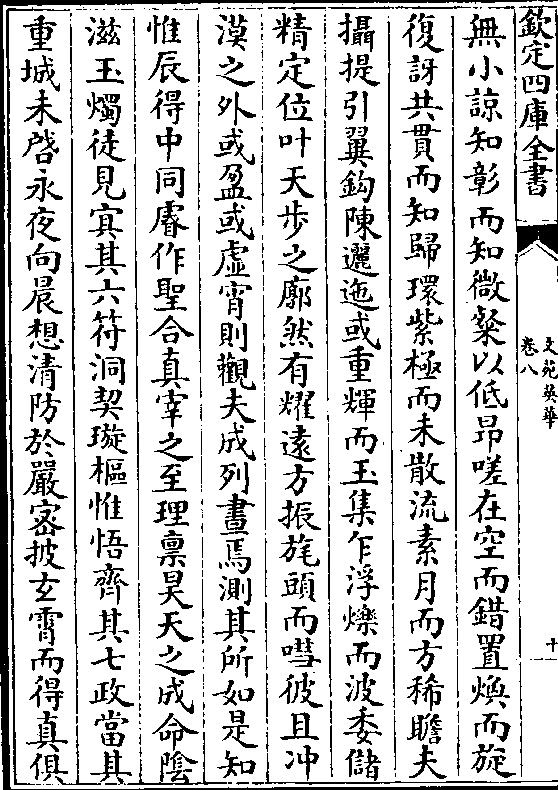 欽定四庫全書
文苑英華
卷八
十
無小諒知彰而知微粲以低昂嗟在空而錯置煥而旋
復訝共貫而知歸環紫極而未散流素月而方稀瞻夫
攝提引翼鈎陳邐迤或重輝而玉集乍浮爍而波委儲
精定位叶天步之廓然有耀遠方振旄頭而嘒彼且冲
漠之外或盈或虛宵則觀夫成列晝焉測其所如是知
惟辰得中同睿作聖合真宰之至理稟昊天之成命陰
滋玉燭徒見寘其六符洞契璇樞惟悟齊其七政當其
重城未啓永夜向晨想清防於嚴宻披玄霄而得真俱